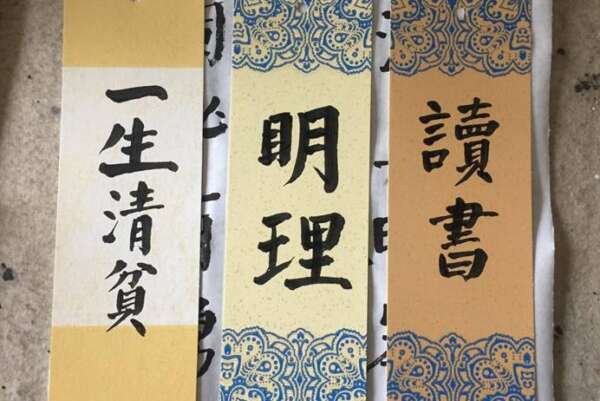 讀書
明理
一生清貧